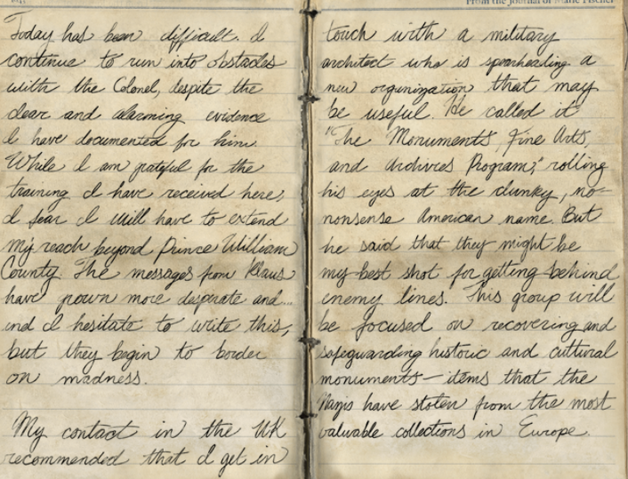 From the Journal of Marie Fischer
Today has been difficult. I
continue to run into obstacles
with the Colonel, despite the
clear and alarming evidence
I have documented for him.
While I am grateful for the
training I have received here,
I fear I will have to extend
my reach beyond Prince William
County. The messages from Klaus
have grown more desperate and...
and I hesitate to write this,
but they begin to border
on madness.
My contact in the UK
recommended that I get in
touch with a military
architect who is spearheading a
new organization that may
be useful. He called it
"The Monuments, Fine Arts,
and Archives Program," rolling
his eyes at the clunky, no-
nonsense American name. But
he said that they might be
my best shot for getting behind
enemy lines. This group will
be focused on recovering and
safeguarding historic and cultural
monuments—items that the
Nazis have stolen from the most
valuable collections in Europe.